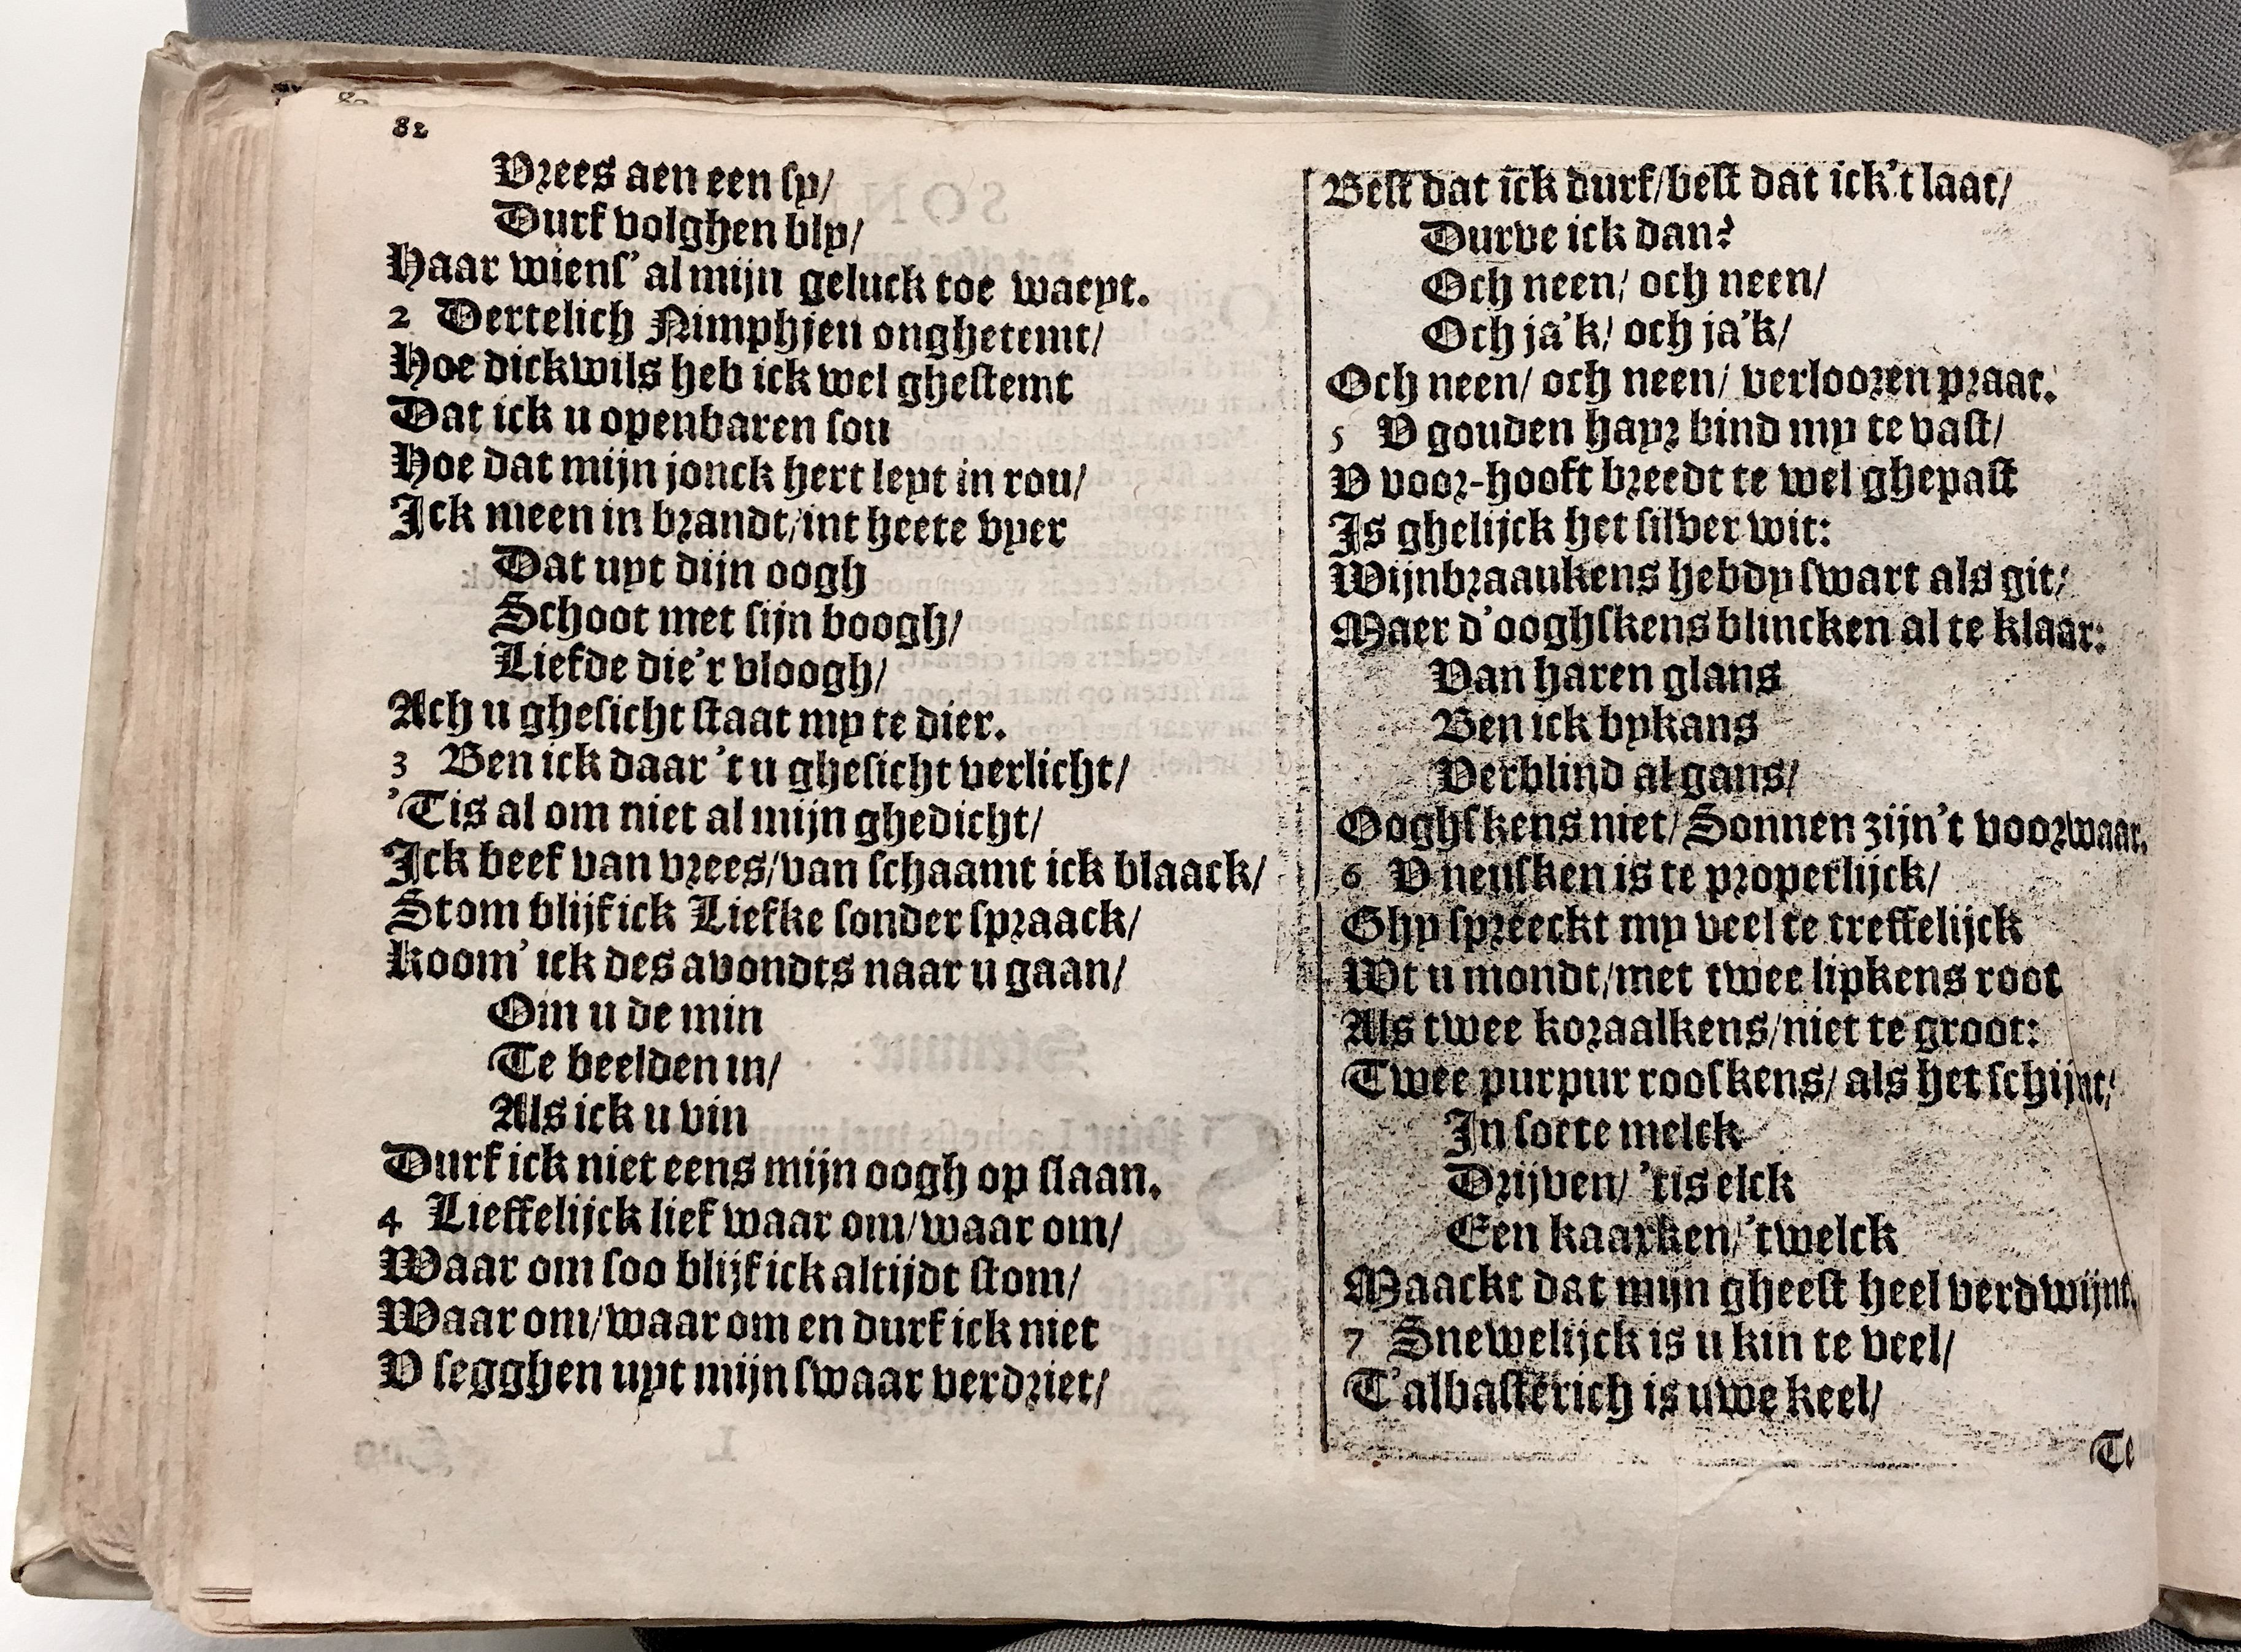 82
Vrees aen een sy/
Durf volghen bly/
Haar wiens' al mijn geluck toe waeyt.
2 Dertelich Nimphjen onghetemt/
Hoe dickwils heb ick wel ghestemt
Dat ick u openbaren sou
Hoe dat mijn jonck hert leyt in rou/
Ick meen in brandt/int heete vyer
Dat uyt dijn oogh
Schoot met sijn boogh/
Liefde die'r vloogh/
Ach u ghesicht staat my te dier.
3 Ben ick daar 't u ghesicht verlicht/
'Tis al om niet al mijn ghedicht/
Ick beef van vrees/van schaamt ick blaack/
Stom blijf ick Liefke sonder spraack/
Koom' ick des avondts naar u gaan/
Om u de min
Te beelden in/
Als ick u vin
Durf ick niet eens mijn oogh op slaan.
4 Lieffelijck lief waar om/waar om/
Waar om soo blijf ick altijdt stom/
Waar om/waar om en durf ick niet
V segghen uyt mijn swaar verdriet/
Best dat ick durf/best dat ick't laat/
Durve ick dan?
Och neen/ och neen/
Och ja'k/ och ja'k/
Och neen/ och neen/ verlooren praat.
5 V gouden hayr bind my te vast/
V voor-hooft breedt te wel ghepast
Is ghelijck het silver wit:
Wijnbraaukens hebdy swart als git/
Maer d'ooghskens blincken al te klaar:
Van haren glans
Ben ick bykans
Verblind al gans/
Ooghskens niet/Sonnen zijn't voorwaar.
6 V neusken is te properlijck/
Ghy spreeckt my veel te treffelijck
Wt u mondt/met twee lipkens root
Als twee koraalkens/niet te groot:
Twee purpur rooskens/ als het schijnt/
In soete melck
Drijven/ 'tis elck
Een kaarken/'twelck
Maackt dat mijn gheest heel verdwijnt.
7 Snewelijck is u kin te veel/
T'albasterich is uwe keel/
Te